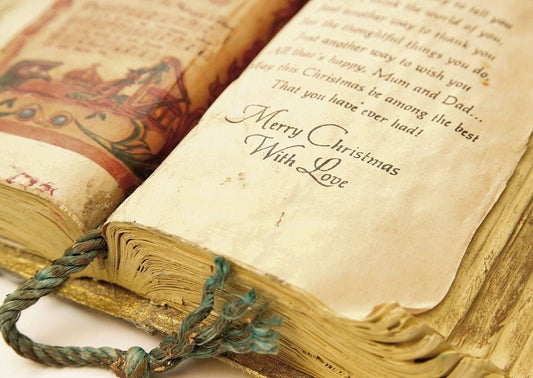 to tell you
think the world of you,
Just another way to thank you
For the thoughtful things you do,
Just another way to wish you
All that's happy, Mum and Dad...
May this Christmas be among the best
That you have ever had!
Merry Christmas
With Love